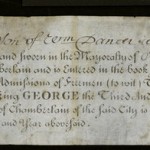 of term Dancer
and sworn in the Mayoralty of
berlain and is Entered in the book
Admissions of Freemen (to wit) T
King GEORGE the Third. And
of Chamberlain of the said City is
and Year abovesaid.